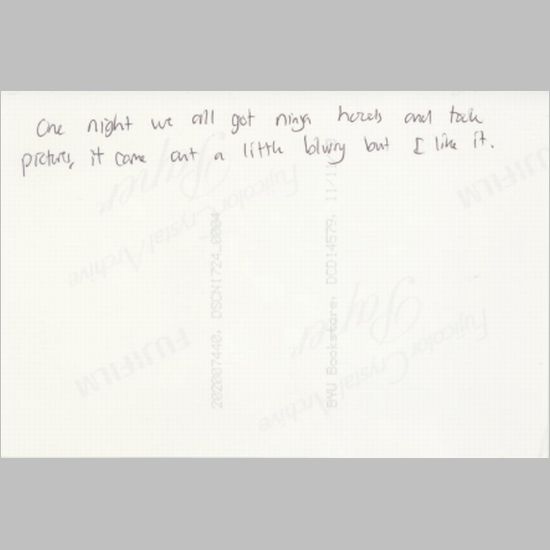 One night we all got ninja hoods and took
pictures, it came out a little blurry but I like it.
Fujicolor Crystal Archive
Paper
FUJIFILM
202007440, DSCN1724,0004
BYU Bookstore, DCD14579, 11/1
FUJIFILM
Fujicolor Crystal Archive
Paper
Fujicolor